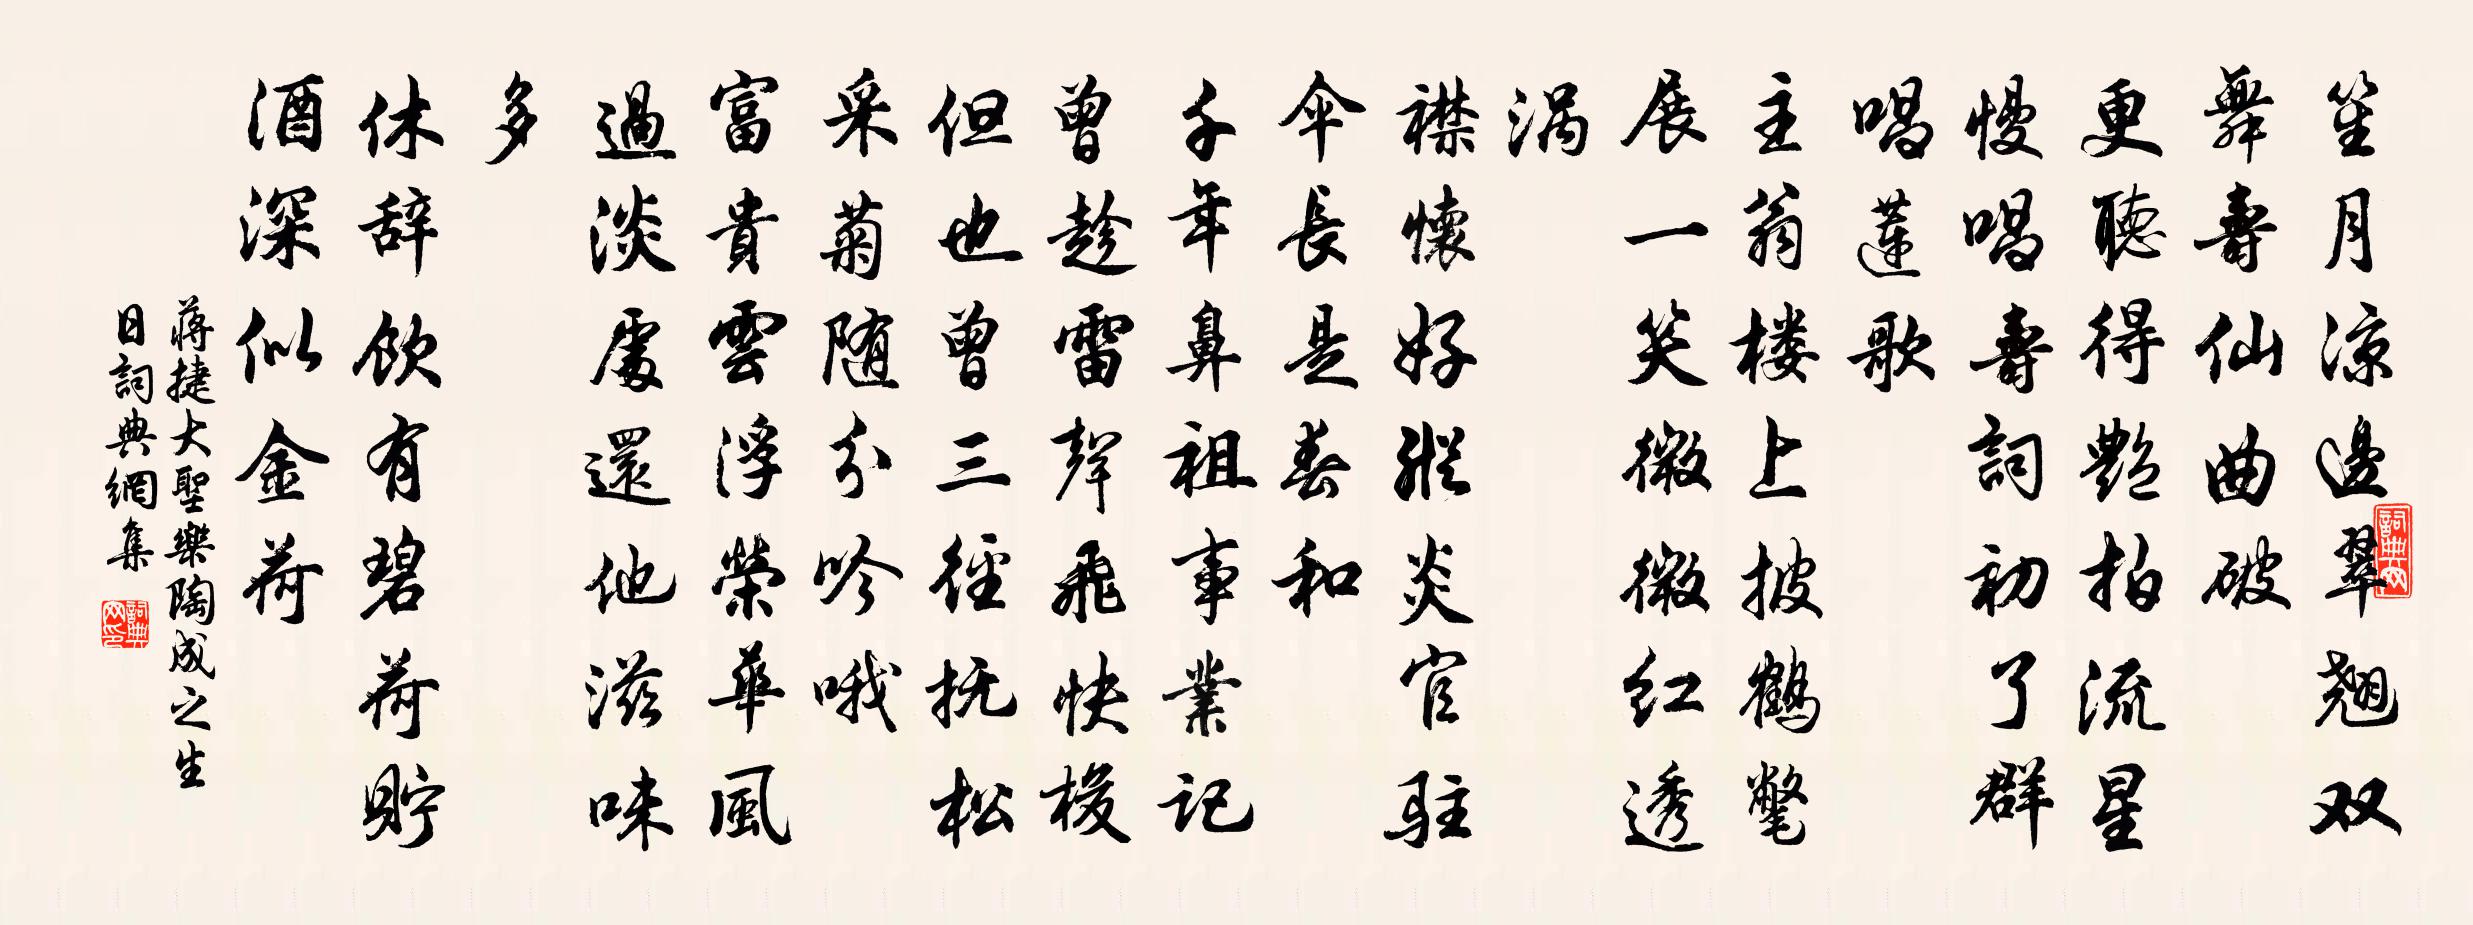 笙月涼邊翠翹双
舞壽仙曲破
更聽得艷拍流星
慢唱壽詞初了群
唱蓮歌
主翁楼上披鶴氅
展一笑微微红透
涡
襟懷好縱炎官駐
伞長是春和
千年鼻祖事業記
曾趁雷聲飛快梭
但也曽三徑抚松
采菊随分吟哦
富貴雲浮榮華風
過淡處還他滋味
多
休辞飲有碧荷貯
酒深似金荷
蔣捷大聖樂陶成之生
日詞典網集
詞典网
詞典网印